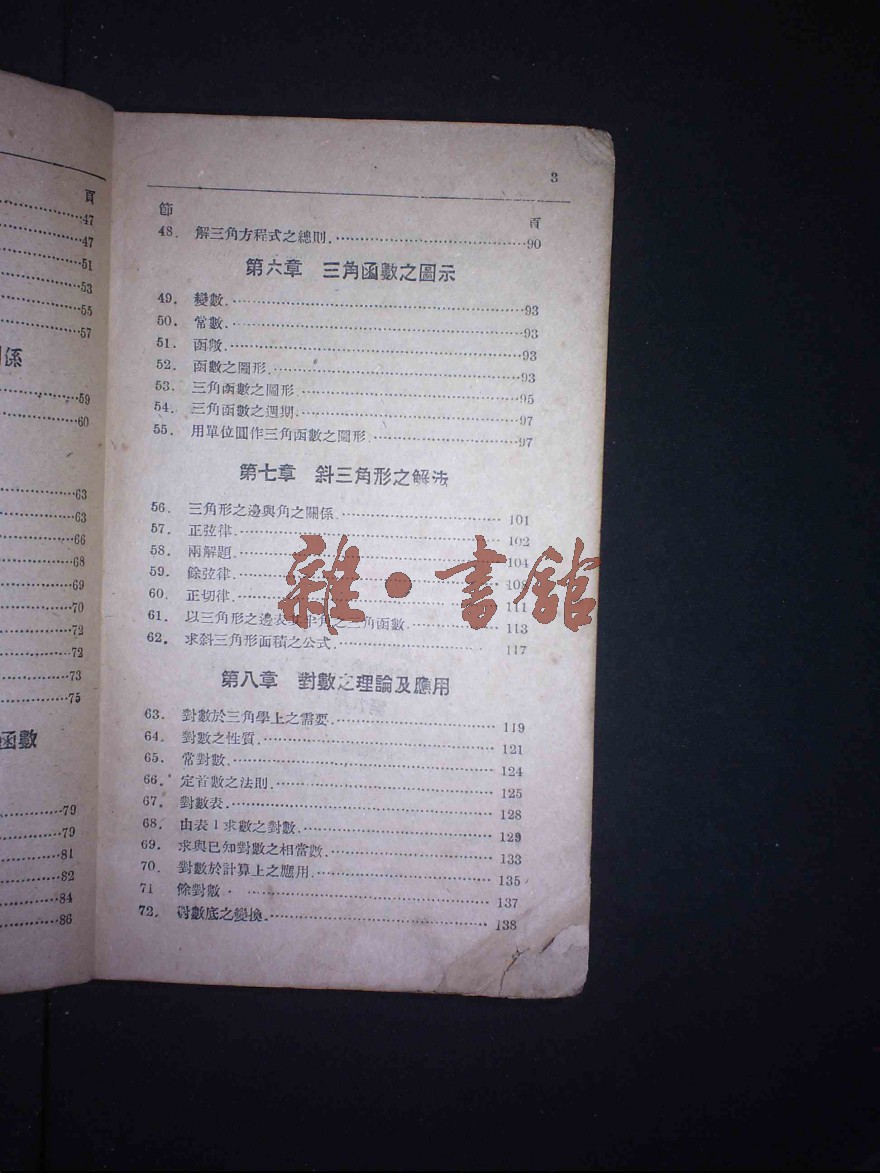 頁
47
47
51
53
55
57
係
59
60
63
63
66
68
69
70
72
72
73
75
函數
79
79
81
82
84
86
3
節 頁
48. 解三角方程式之總則 90
第六章 三角函數之圖示
49. 變數 93
50. 常數 93
51. 函數 93
52. 函數之圖形 93
53. 三角函數之圖形 95
54. 三角函數之週期 97
55. 用單位圓作三角函數之圖形 97
第七章 斜三角形之解法
56. 三角形之邊與角之關係 101
57. 正弦律 102
58. 兩解題 104
59. 餘弦律 108
60. 正切律 111
61. 以三角形之邊表其半角之三角函數 113
62. 求斜三角形面積之公式 117
雜·書館
第八章 對數之理論及應用
63. 對數於三角學上之需要 119
64. 對數之性質 121
65. 常對數 124
66. 定首數之法則 125
67. 對數表 128
68. 由表 I 求數之對數 129
69. 求與已知對數之相當數 133
70. 對數於計算上之應用 135
71 餘對數 137
72. 對數底之變換 138